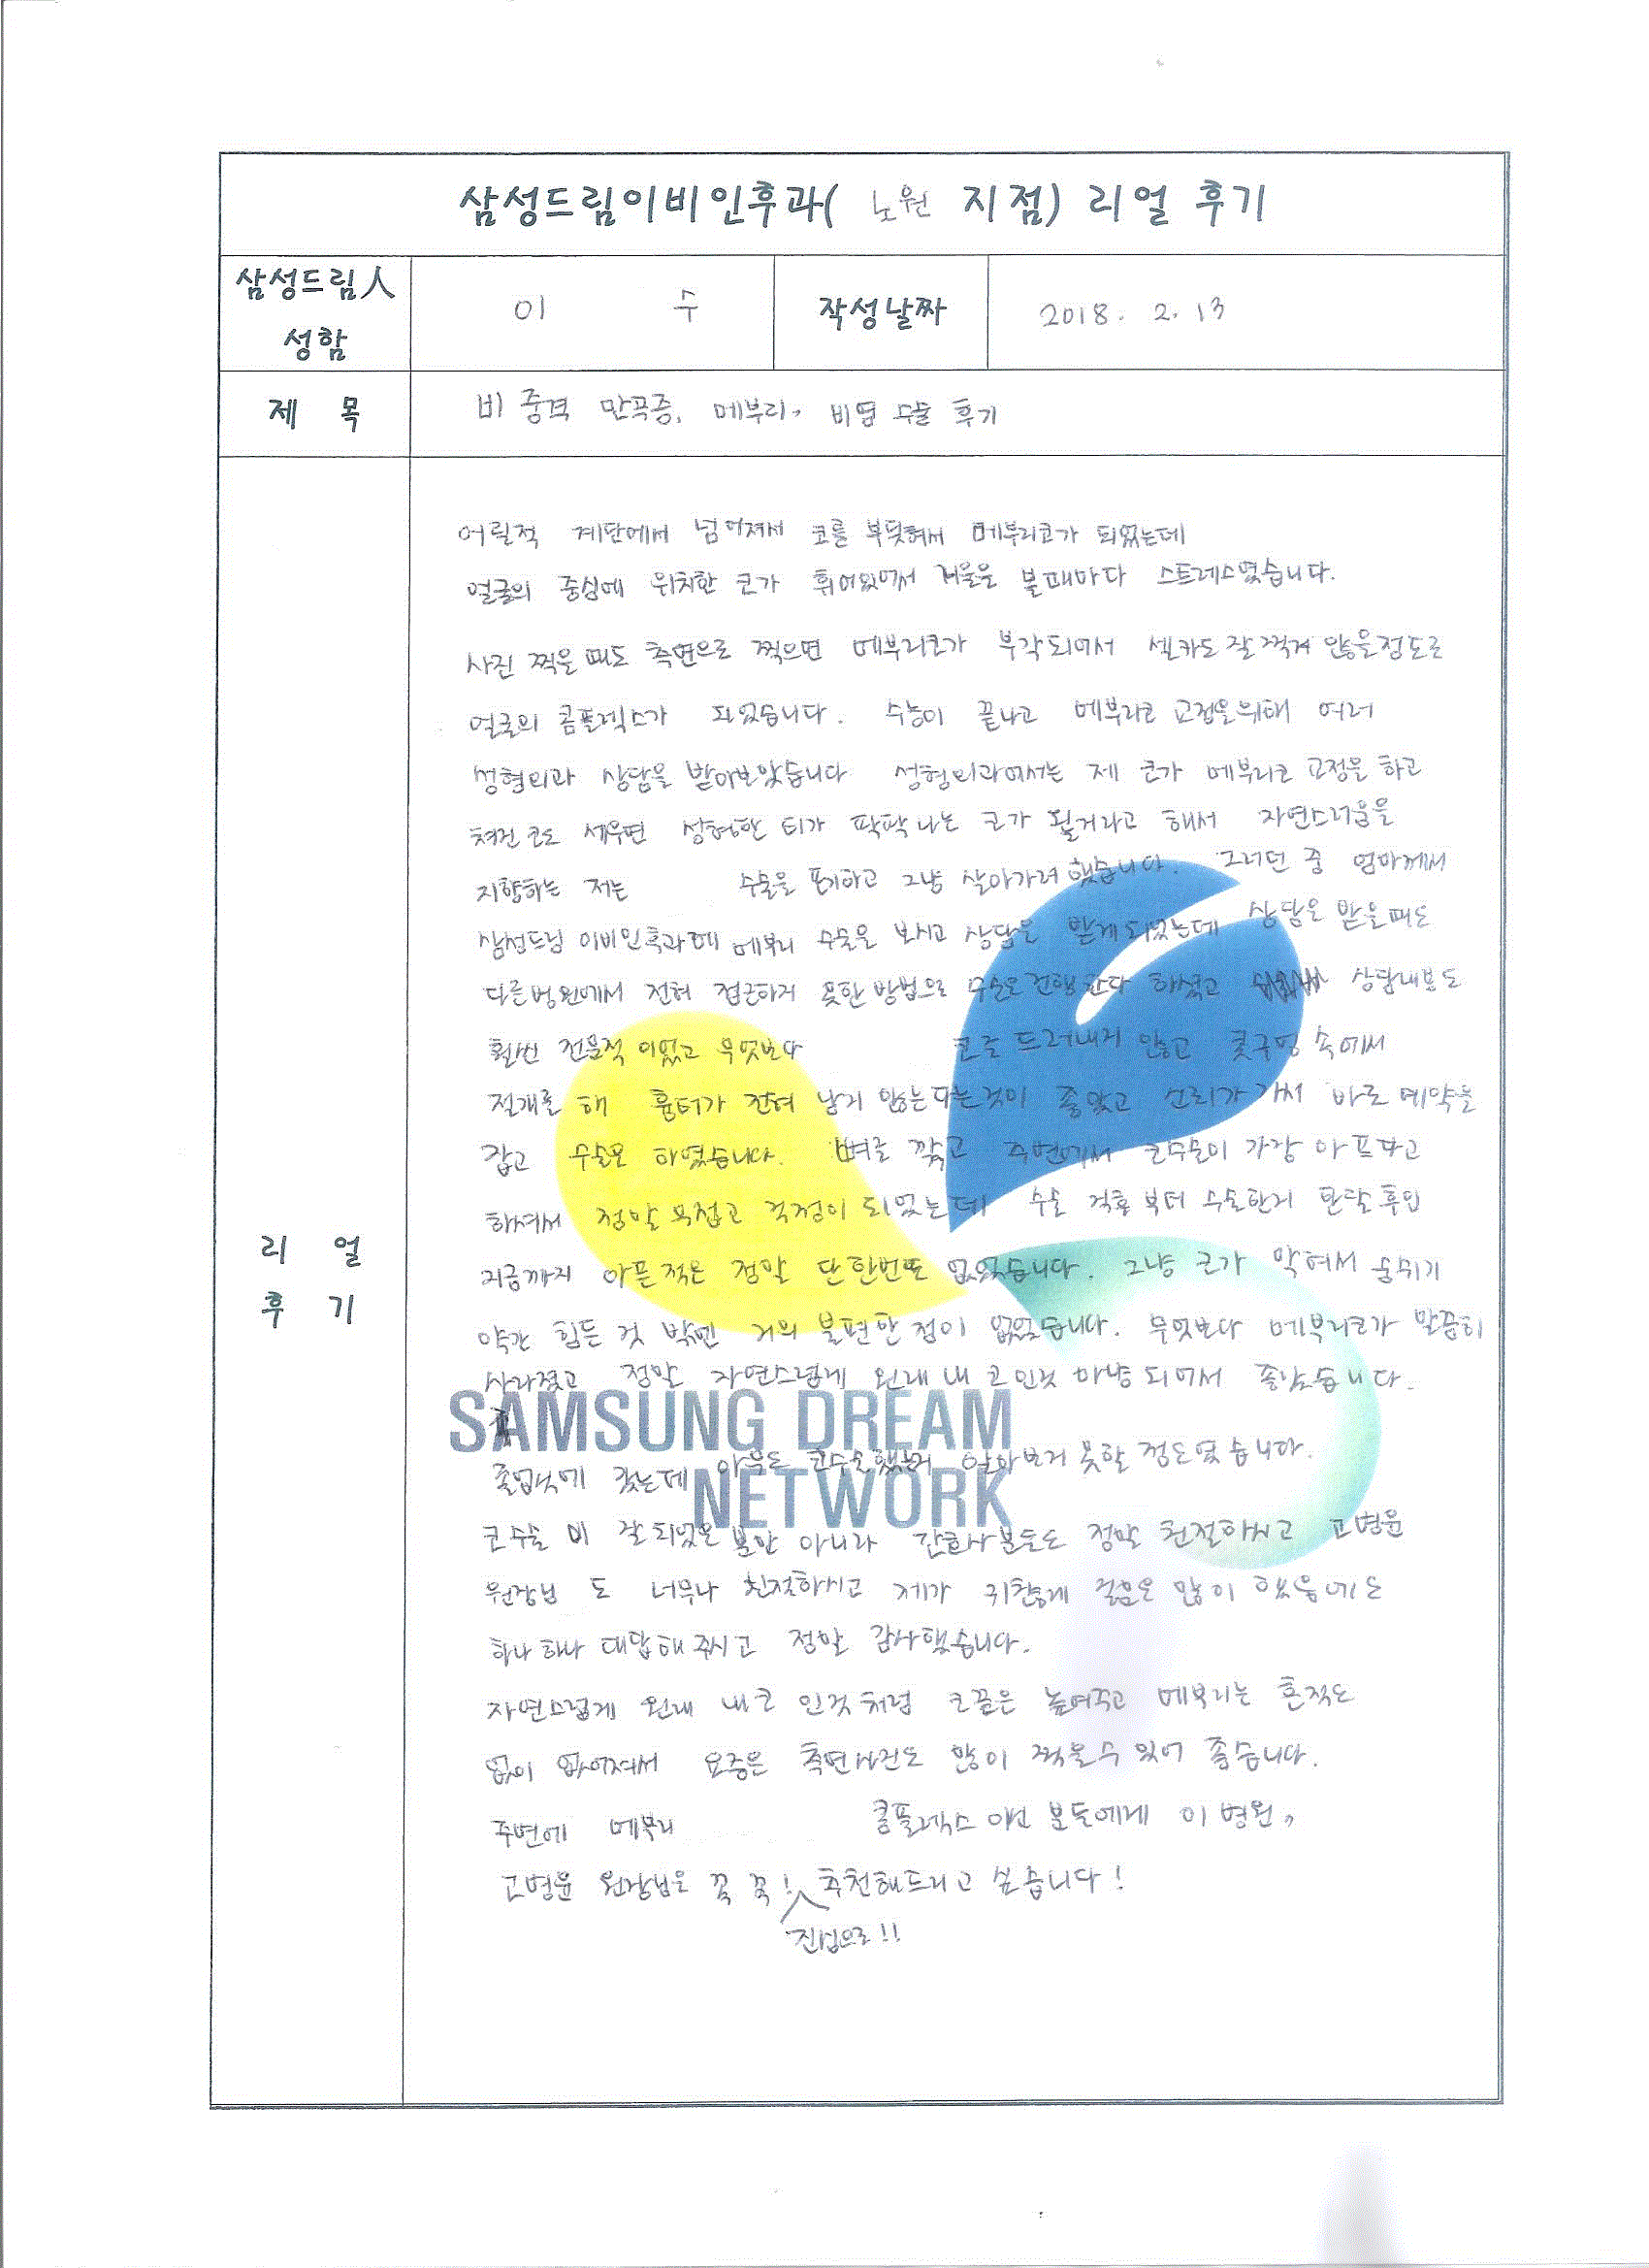 삼성드림이비인후과( 노원 지점) 리얼 후기
삼성드림人
성함
이 수
작성날짜
2018. 2. 13
제 목
비중격 만곡증, 메부리, 비염 수술 후기
리 얼
후 기
어릴적 계단에서 넘어져서 코를 부딪혀서 메부리코가 되었는데
얼굴의 중심에 위치한 코가 휘어있어서 거울을 볼때마다 스트레스였습니다.
사진 찍을때도 측면으로 찍으면 메부리코가 부각되어서 셀카도 잘찍지 않을정도로
얼굴의 콤플렉스가 되었습니다. 수능이 끝나고 메부리코 교정을위해 여러
성형외과 상담을 받아보았습니다 성형외과에서는 제 코가 메부리코 교정을 하고
쳐진 코도 세우면 성형한 티가 팍팍 나는 코가 될거라고 해서 자연스러움을
지향하는 저는 수술을 포기하고 그냥 살아가려 했습니다. 그러던 중 엄마께서
삼성드림 이비인후과에 메부리 수술을 보시고 상담을 받게되었는데 상담을 받을때도
다른병원에서 전혀 접근하지 못한 방법으로 수술을 진행한다 하셨고 상담내용도
훨씬 전문적 이었고 무엇보다 코를 드러내지 않고 콧구멍 속에서
절개를 해 흉터가 전혀 남지 않는다는것이 좋았고 신뢰가 가서 바로 예약을
잡고 수술을 하였습니다. 뼈를 깎고 주변에서 코수술이 가장 아프다고
하여서 정말 무섭고 걱정이 되었는데 수술 직후 부터 수술한지 한달 후인
지금까지 아픈적은 정말 단 한번도 없었습니다. 그냥 코가 막혀서 숨쉬기
약간 힘든 것 밖엔 거의 불편한 점이 없었습니다. 무엇보다 메부리코가 말끔히
사라졌고 정말 자연스럽게 원래 내 코인것 마냥 되어서 좋았습니다.
졸업식에 갔는데 아무도 코수술했는지 알아보지 못할 정도였습니다.
코수술 이 잘되었을 뿐만 아니라 간호사분들도 정말 친절하시고 고병윤
원장님 도 너무나 친절하시고 제가 귀찮게 질문을 많이 했음에도
하나하나 대답해주시고 정말 감사했습니다.
자연스럽게 원래 내코 인것 처럼 코끝은 높여주고 메부리는 흔적도
없이 없어져서 요즘은 측면사진도 많이 찍을수 있어 좋습니다.
주변에 메부리 콤플렉스 이신 분들에게 이 병원,
고병윤 원장님을 꼭 꼭! 추천해드리고 싶습니다!
진심으로!!
SAMSUNG DREAM
NETWORK